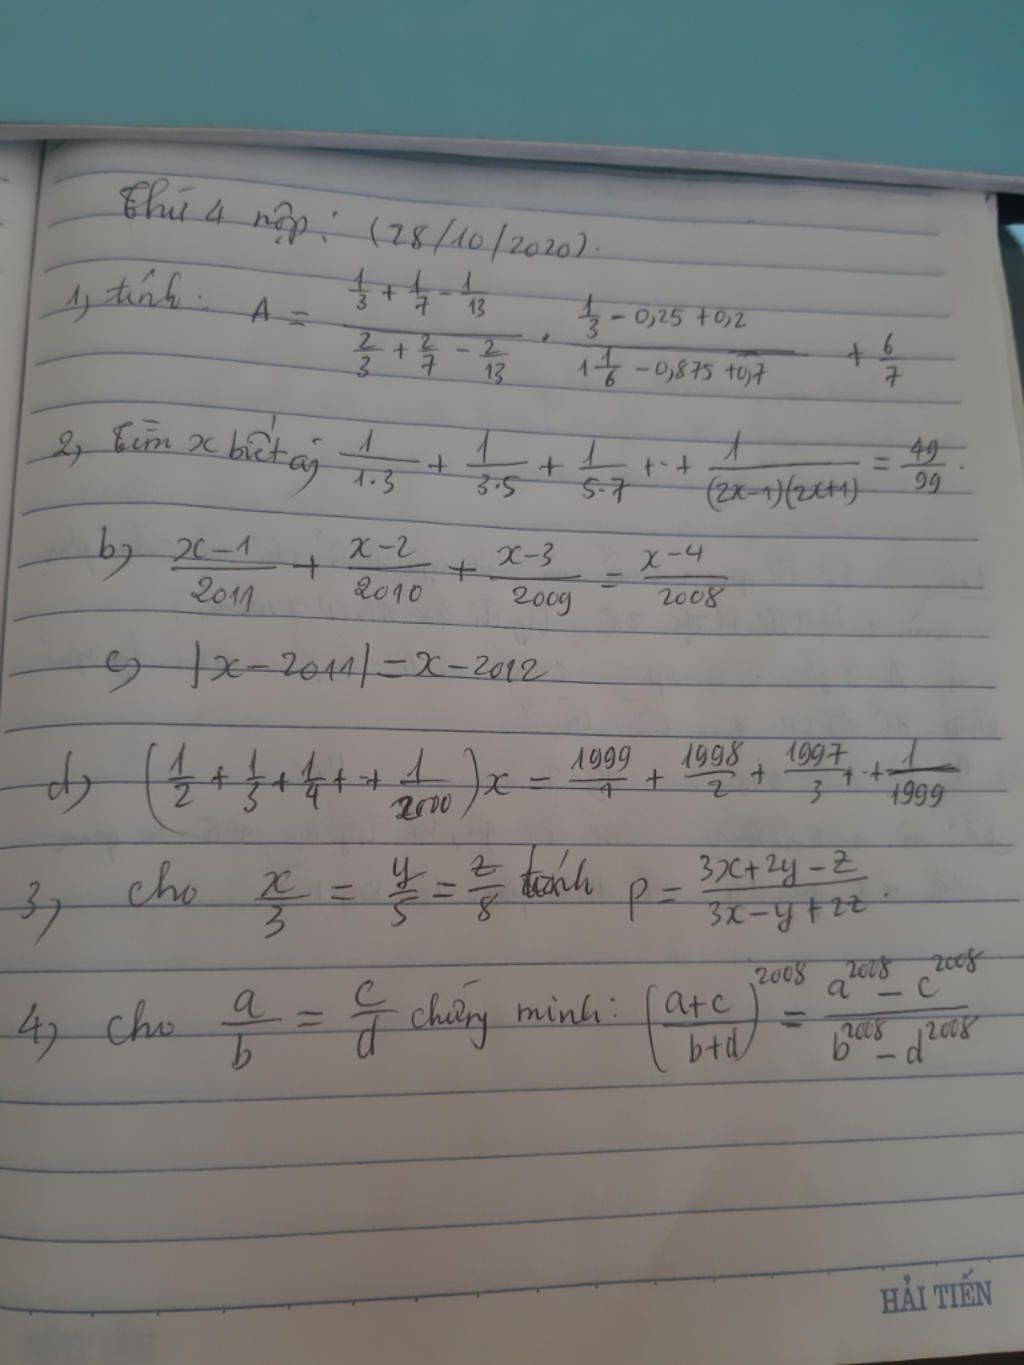 Thứ 4 nộp: (28/10/2020).
1, tính: A = (1/3 + 1/7 - 1/13)/(2/3 + 2/7 - 2/13) . (1/3 - 0,25 + 0,2)/(1 1/6 - 0,875 + 0,7) + 6/7
2, Tìm x biết a, 1/(1.3) + 1/(3.5) + 1/(5.7) + .. + 1/((2x-1)(2x+1)) = 49/99.
b, (x-1)/2011 + (x-2)/2010 + (x-3)/2009 = (x-4)/2008
c, |x-2011| = x-2012
d, (1/2 + 1/3 + 1/4 + .. + 1/2000)x = 1999/1 + 1998/2 + 1997/3 + .. + 1/1999
3, cho x/3 = y/5 = z/8 tính P = (3x+2y-z)/(3x-y+2z).
4, cho a/b = c/d chứng minh: ((a+c)/(b+d))^2008 = (a^2008 - c^2008)/(b^2008 - d^2008)
HẢI TIẾN